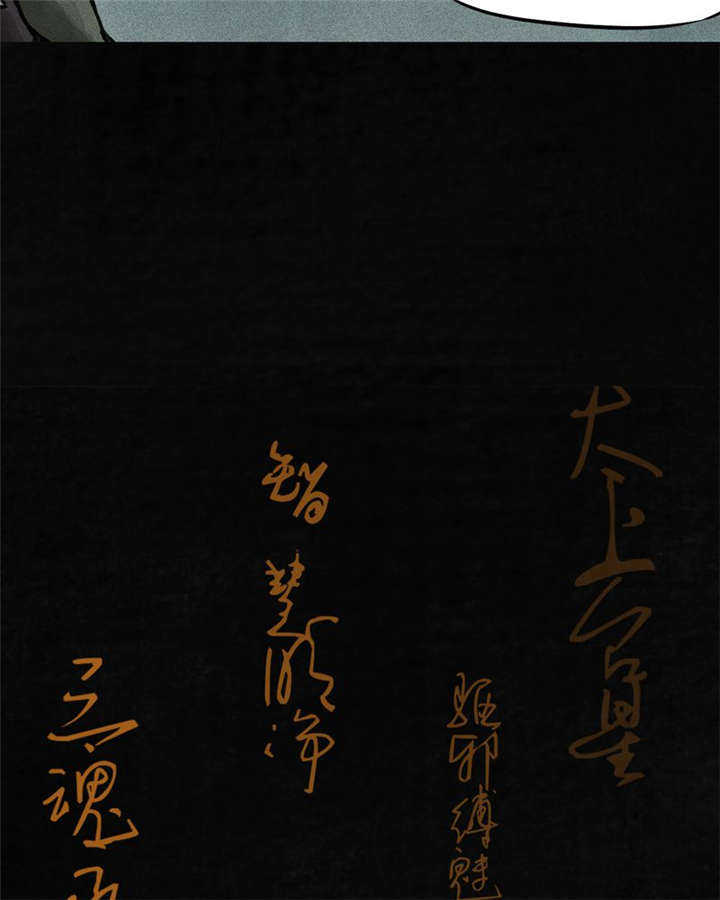 太上台星
驱邪缚魅
智慧明净
三魂